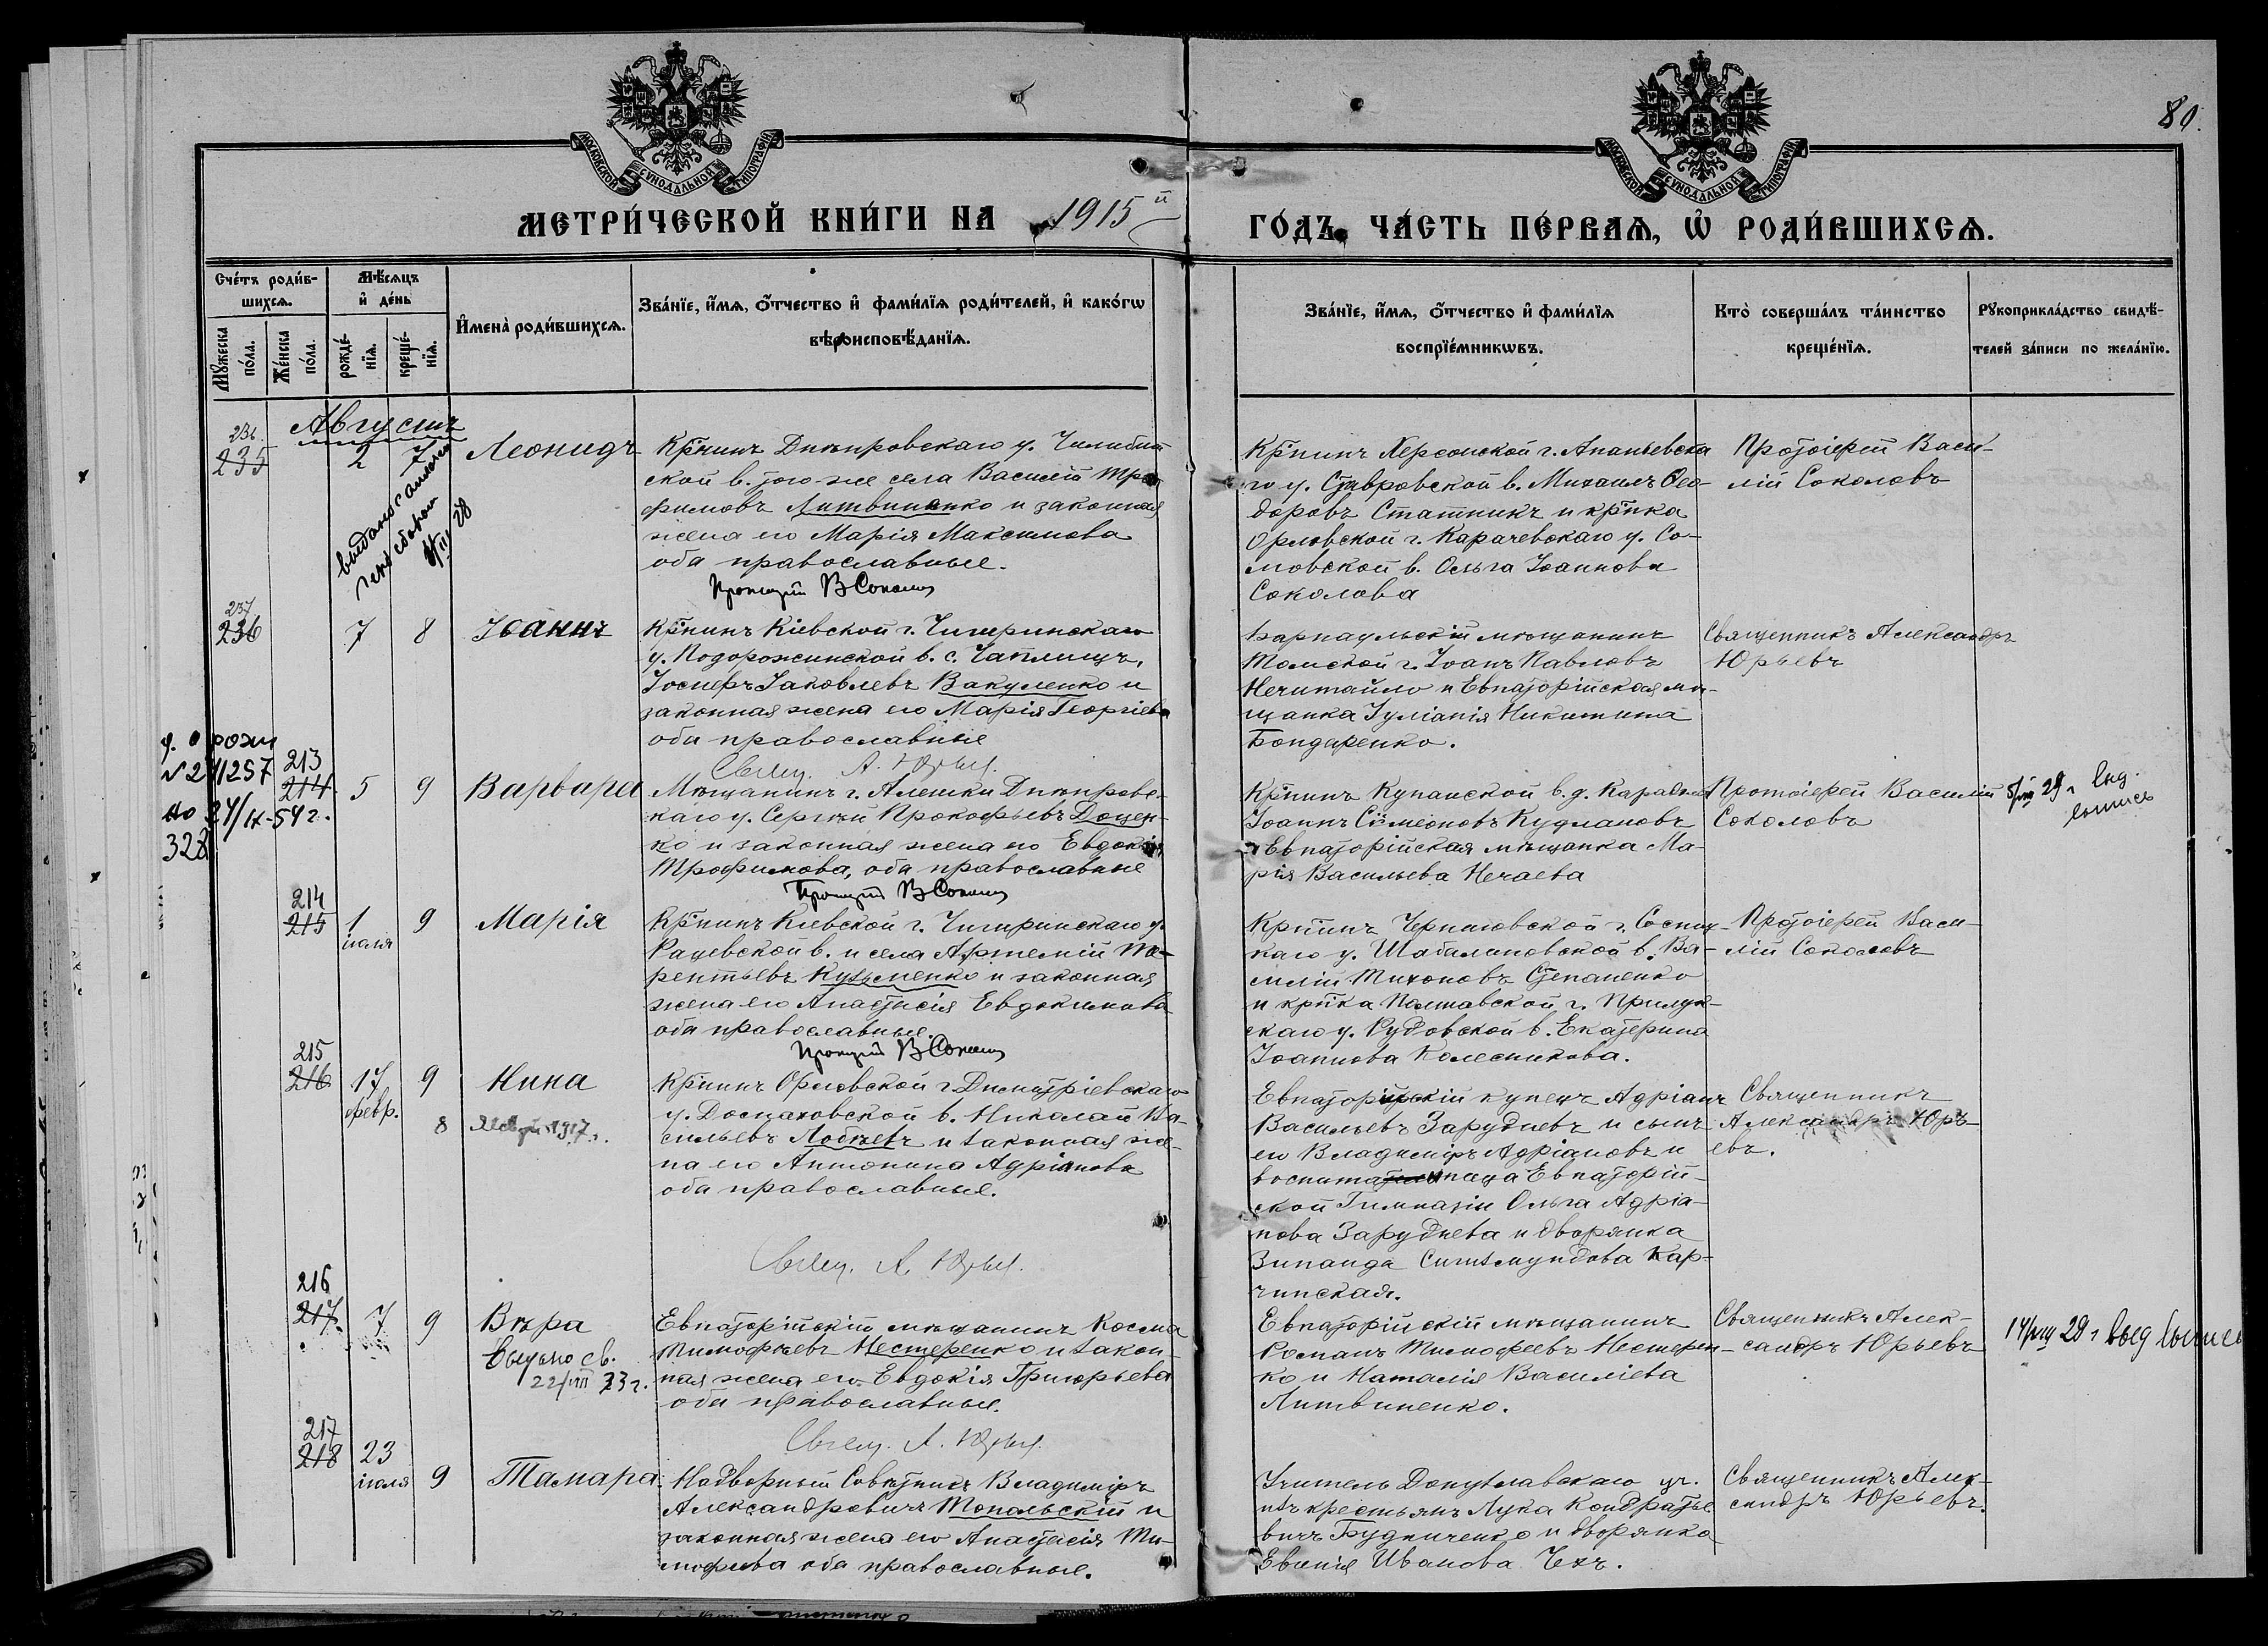 80.
МОСКОВСКОЙ СѴНОДАЛЬНОЙ ТИПОГРАФІИ
МОСКОВСКОЙ СѴНОДАЛЬНОЙ ТИПОГРАФІИ
МЕТРИ́ЧЕСКОЙ КНИ́ГИ НА 1915й
ГО́ДЪ, ЧА́СТЬ ПЕ́РВАѦ, Ѡ҆ РОДИ́ВШИХСѦ.
Сче́тъ роди́в-
шихсѧ.
Мꙋжеска по́ла.
Же́нска по́ла.
Мѣ́сѧцъ
и҆ де́нь
рожде́-
нїѧ.
креще́-
нїѧ.
И҆мена̀ роди́вшихсѧ.
Зва́нїе, и҆́мѧ, ѻ҆́тчество и҆ фами́лїѧ роди́телей, и҆ како́гѡ
вѣроисповѣ́данїѧ.
Зва́нїе, и҆́мѧ, ѻ҆́тчество и҆ фами́лїѧ
воспрїе́мникѡвъ.
Кто̀ соверша́лъ та́инство
креще́нїѧ.
Рꙋкоприкла́дство свидѣ́-
телей за́писи по жела́нїю.
Августъ
236.
235
2 7
Леонидъ
Кр͠нинъ Днѣпровскаго у. Челыбит
ской в. того же села Василій Тро
фимовъ Литвиненко и законная
жена его Марія Максимова
оба православные.
Протоіерей В Соколов
Кр͠нинъ Херсонской г. Ананьевска
го у. Ставровской в. Михаилъ Ѳео-
доровъ Статникъ и кр͠нка
Орловской г. Карачевскаго у. Со-
мовской в. Ольга Іоаннова
Соколова
Протоіерей Васи-
лій Соколовъ
237
236
7 8
Іоаннъ
Кр͠нинъ Кіевской г. Чигиринскаго
у. Подорожинской в. с. Чаплищъ,
Іосифъ Іаковлевъ Вакуленко и
законная жена его Марія Георгіева
оба православные
Свящ. А. Юрьев.
Барнаульскій мѣщанинъ
Томской г. Іоанъ Павловъ
Нечитайло и Евпаторійская мѣ-
щанка Іуліанія Никитина
Бондаренко.
Священникъ Александръ
Юрьевъ
213
214
5 9
Варвара
Мѣщанинъ г. Алешки Днѣпровс-
каго у. Сергѣй Прокофьевъ Доцен-
ко и законная жена его Евдокія
Трофимова, оба православные
Протоіерей В Соколов
Іоаннъ Сѵмеоновъ Кудлановъ
Евпаторійская мѣщанка Ма-
рія Васильева Нечаева
Протоіерей Василій
Соколовъ
214
215
1
іюля
9
Марія
Кр͠нинъ Кіевской г. Чигиринскаго у.
Рацевской в. и села Артемій Те-
рентьевъ Кузьменко и законная
жена его Анастасія Евдокимова
оба православные.
Протоіерей В Соколов
Кр͠нинъ Черниговской г. Сосниц-
каго у. Шабалиновской в. Ва-
силій Тихоновъ Степаненко
и кр͠нка Полтавской г. Прилук-
скаго у. Рудовской в. Екатерина
Іоаннова Колесникова.
Протоіерей Васи-
лій Соколовъ
215
216
17
февр.
9
Нина
8
Кр͠нинъ Орловской г. Дмитріевскаго
у. Николай Ва-
сильевъ Лобѣевъ и законная же-
на его Антонина Адріанова
оба православные.
Свящ. А. Юрьев.
Евпаторійскій купецъ Адріанъ
Васильевъ Заруднев и сынъ
его Владиміръ Адріановъ и
воспитаница Евпаторій-
ской Гимназіи Ольга Адріа-
нова Заруднева и дворянка
Зинаида Сигизмундова Кар-
чинская.
Священникъ
Александръ Юрь-
евъ.
216
217.
7 9
Вѣра
выдано св.
22/VIII 23 г.
Евпаторійскій мѣщанинъ Косма
Тимофѣевъ Нестеренко и закон-
ная жена его Евдокія Григорьева
оба православные.
Свящ. А. Юрьев.
Евпаторійскій мѣщанинъ
Романъ Тимофеевъ Нестерен-
ко и Наталія Василіева
Литвиненко.
Священникъ Алек-
сандръ Юрьевъ
217
218
23
іюля
9
Тамара
Надворный Совѣтникъ Владиміръ
Александровичъ Топальскій и
законная жена его Анастасія Ти-
мофѣева оба православные.
Учитель Донузлавскаго уч.
изъ крестьянъ Лука Кондратье
вичъ Будниченко и дворянка
Евгенія Иванова Чехъ.
Священникъ Алек-
сандръ Юрьевъ.